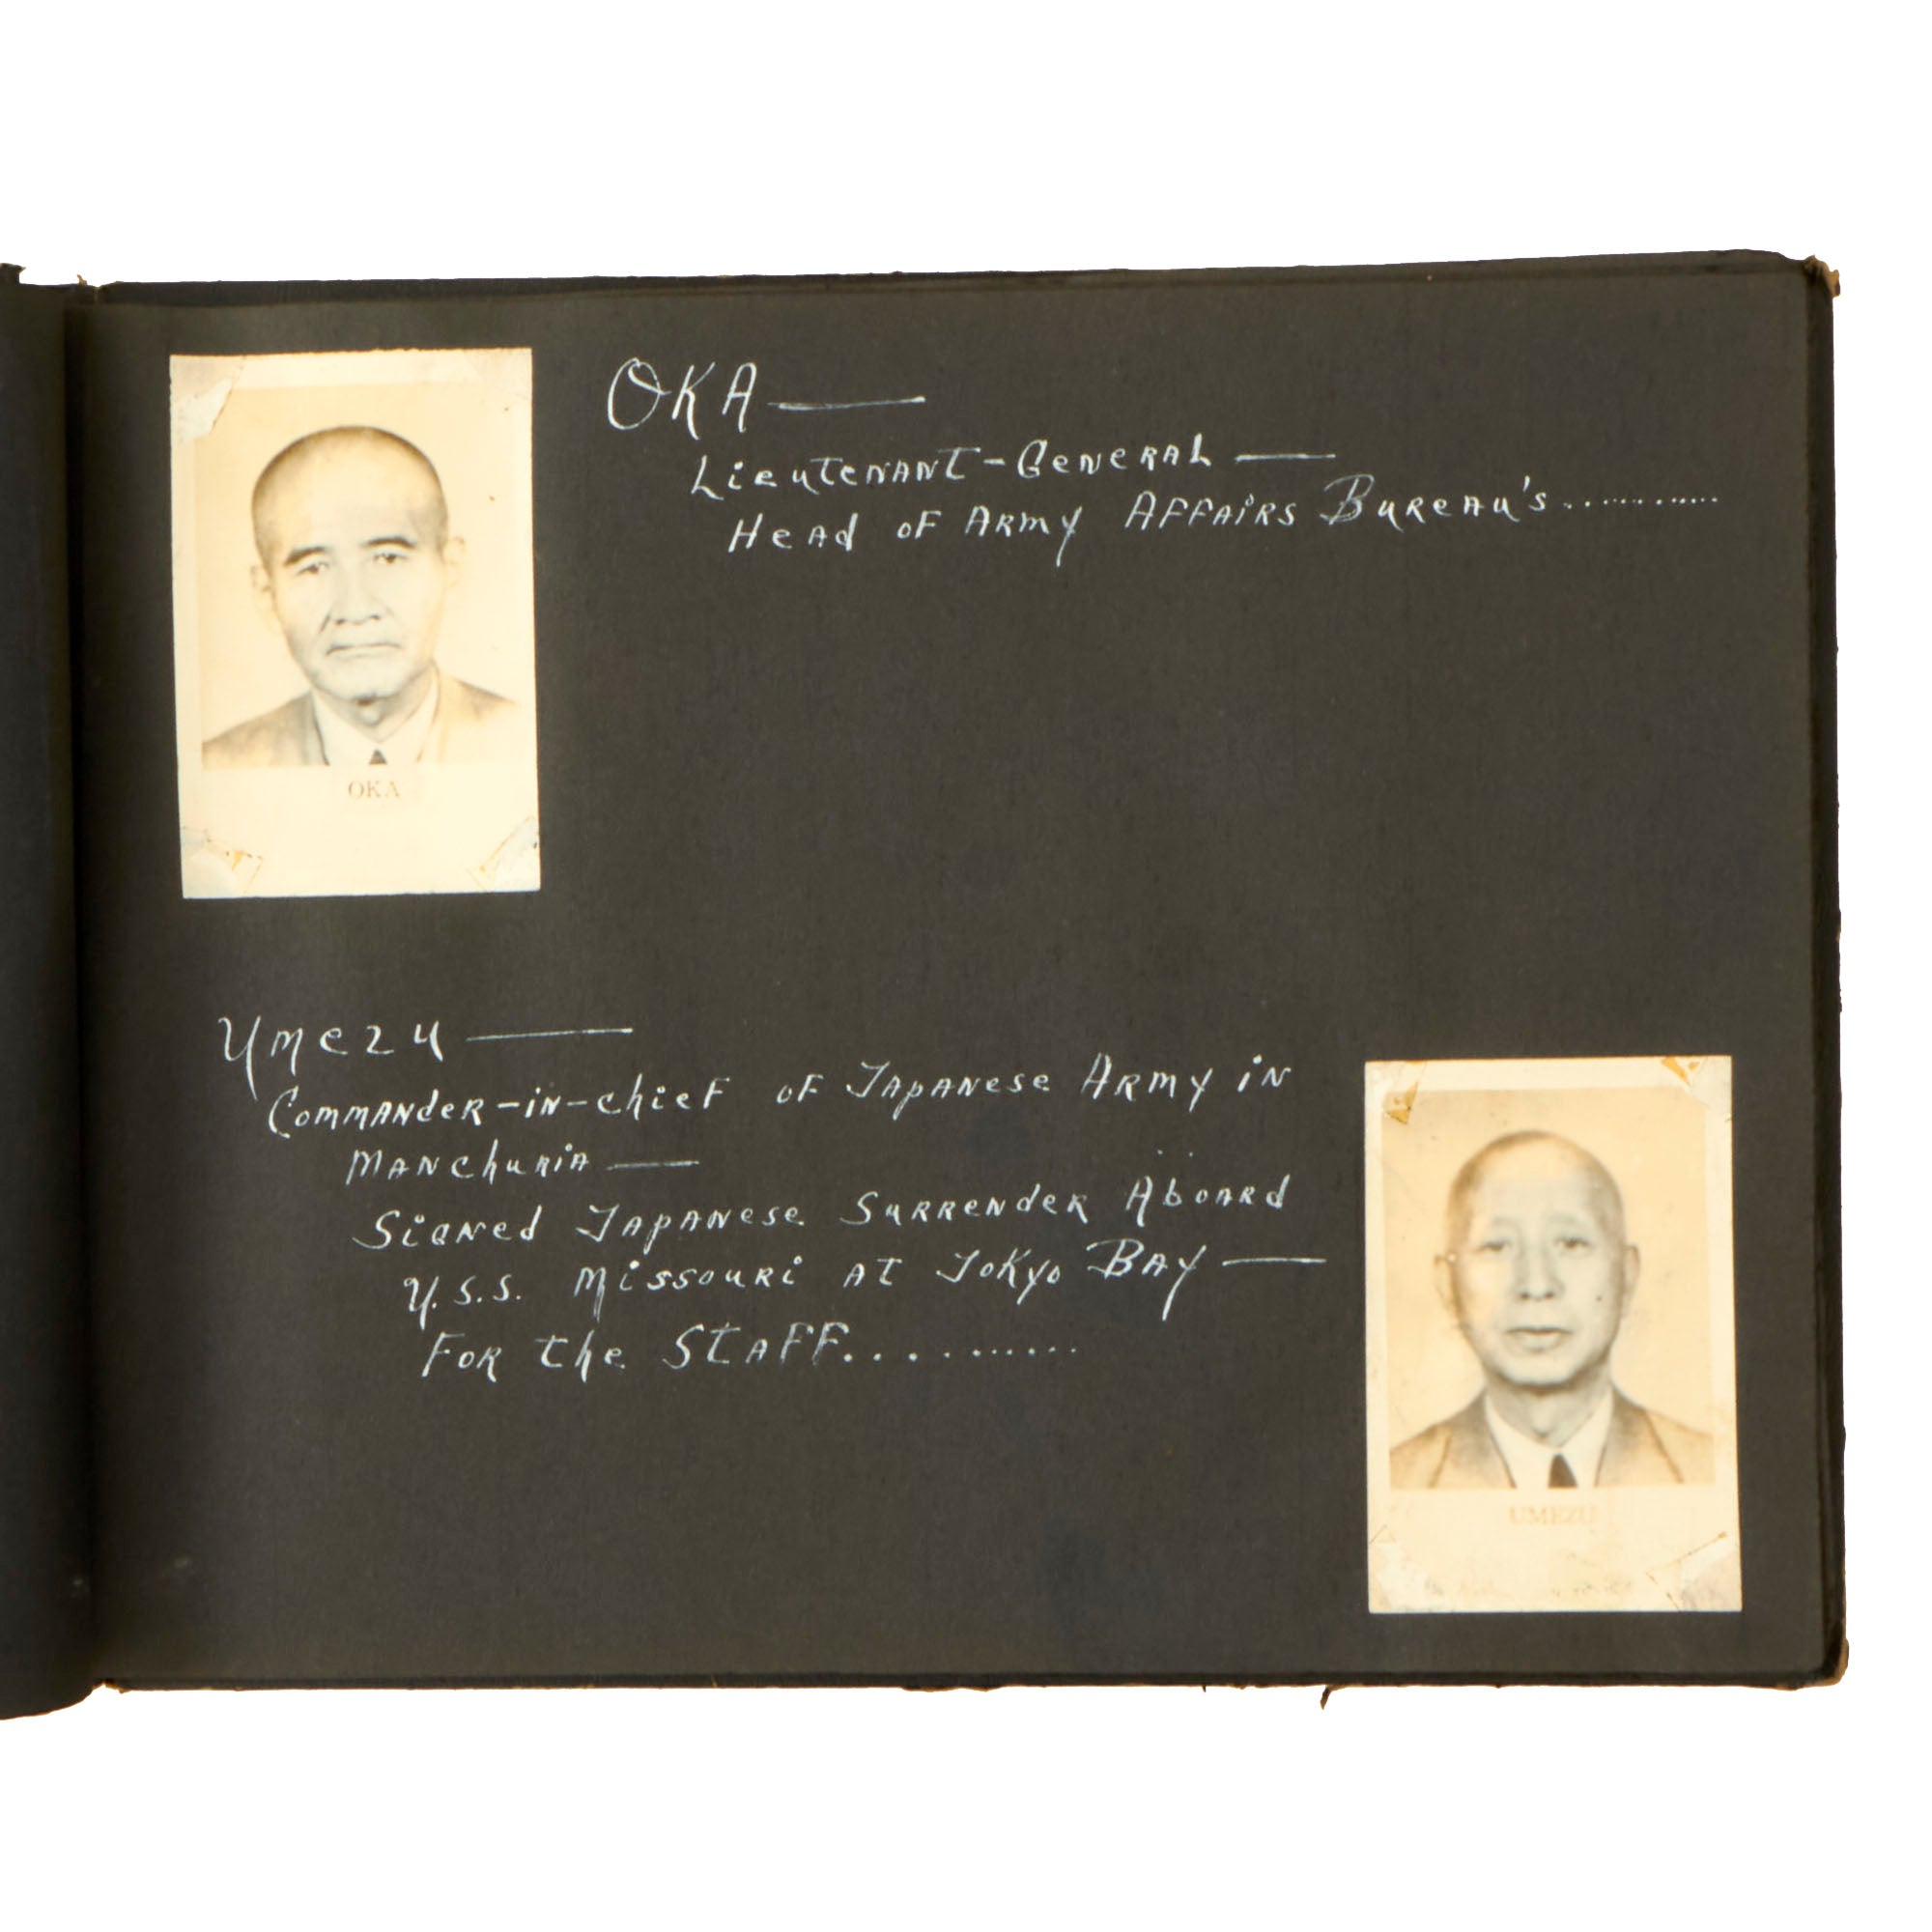 OKA—
Lieutenant-General—
Head of Army Affairs Bureau's...........
OKA
Umezu—
Commander-in-chief of Japanese Army in
Manchuria—
Signed Japanese Surrender Aboard
U.S.S. Missouri at Tokyo Bay—
For the Staff...........
UMEZU